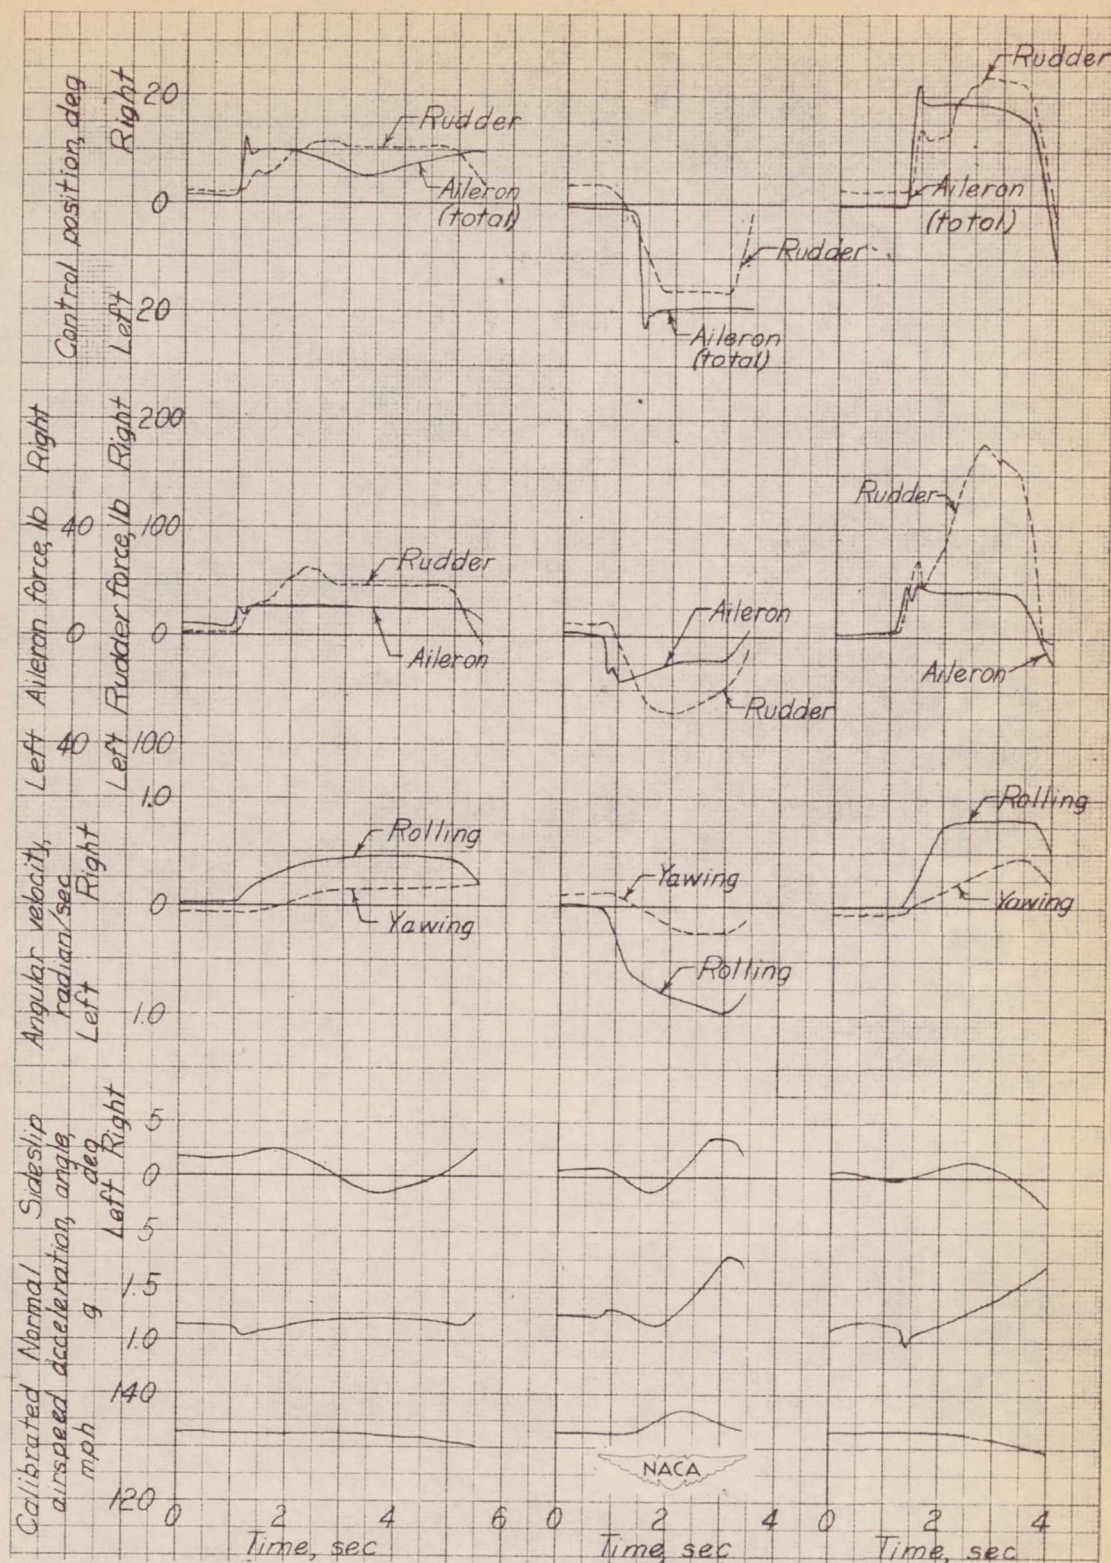 Control position, deg
Left Right
20
0
20
Rudder
Aileron
(total)
Rudder
Aileron
(total)
Rudder
Aileron
(total)
Aileron force, lb
Left Right
40
0
40
Rudder force, lb
Left Right
200
100
0
100
Rudder
Aileron
Aileron
Rudder
Rudder
Aileron
Angular velocity,
radian/sec
Left Right
1.0
0
1.0
Rolling
Yawing
Yawing
Rolling
Rolling
Yawing
Sideslip
angle,
deg
Left Right
5
0
5
Normal
acceleration,
g
1.5
1.0
Calibrated
airspeed
mph
140
120
NACA
0 2 4 6 0 2 4 0 2 4
Time, sec Time, sec Time, sec